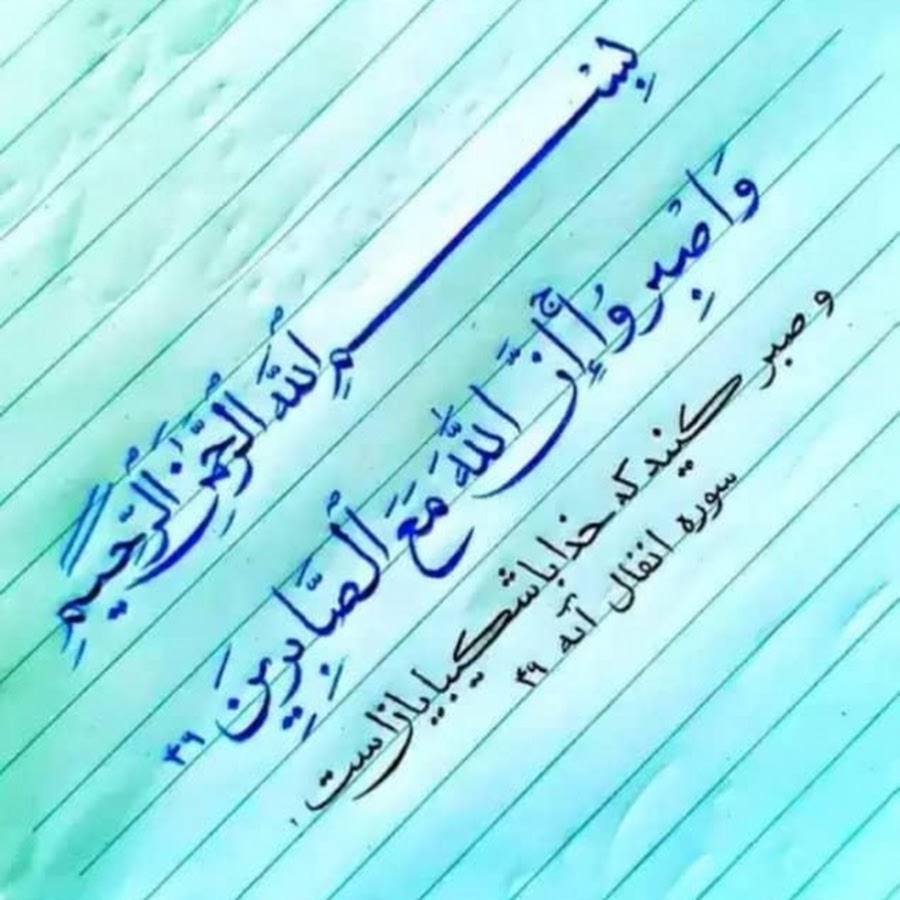 بِسْمِ اللهِ الرَّحْمٰنِ الرَّحِيمِ
وَاصْبِرُوا ۚ إِنَّ اللَّهَ مَعَ الصَّابِرِينَ ۴۶
و صبر کنید که خدا با شکیبایان است
سوره انفال آیه ۴۶